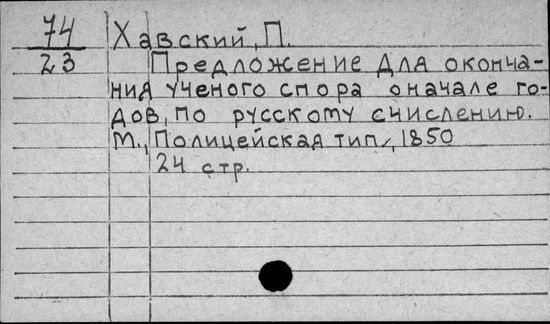 74 Хавский, П.
23 Предложение для оконча-
ния ученого спора о начале го-
дов, по русскому счислению.
М., Полицейская тип., 1850
24 стр.